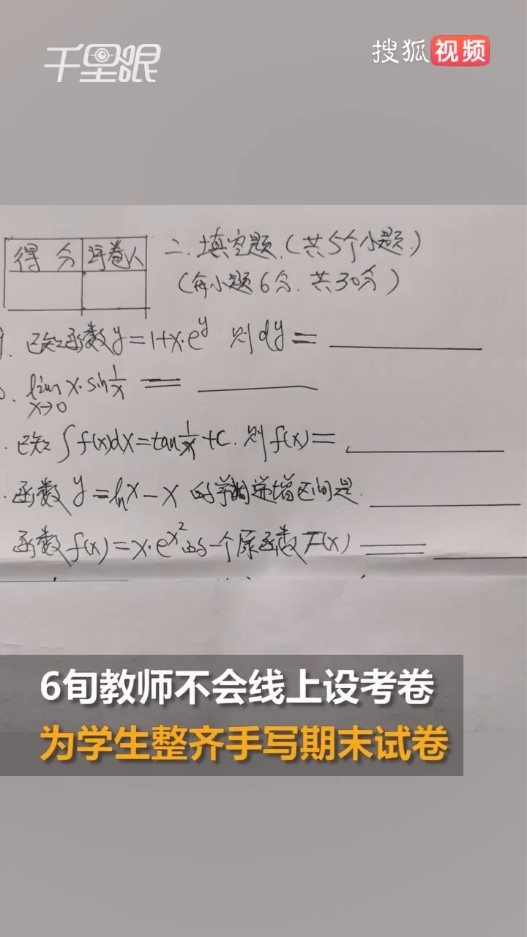 千里眼
搜狐视频
得分 评卷人
二. 填空题.(共5个小题.)
(每小题6分. 共30分)
已知函数y=1+x·e^y 则dy=
lim x→0 x·sin 1/x =
已知∫f(x)dx=tan 1/x +C. 则f(x)=
函数y=lnx-x的单调递增区间是
函数f(x)=x·e^x²的一个原函数F(x)=
6旬教师不会线上设考卷
为学生整齐手写期末试卷